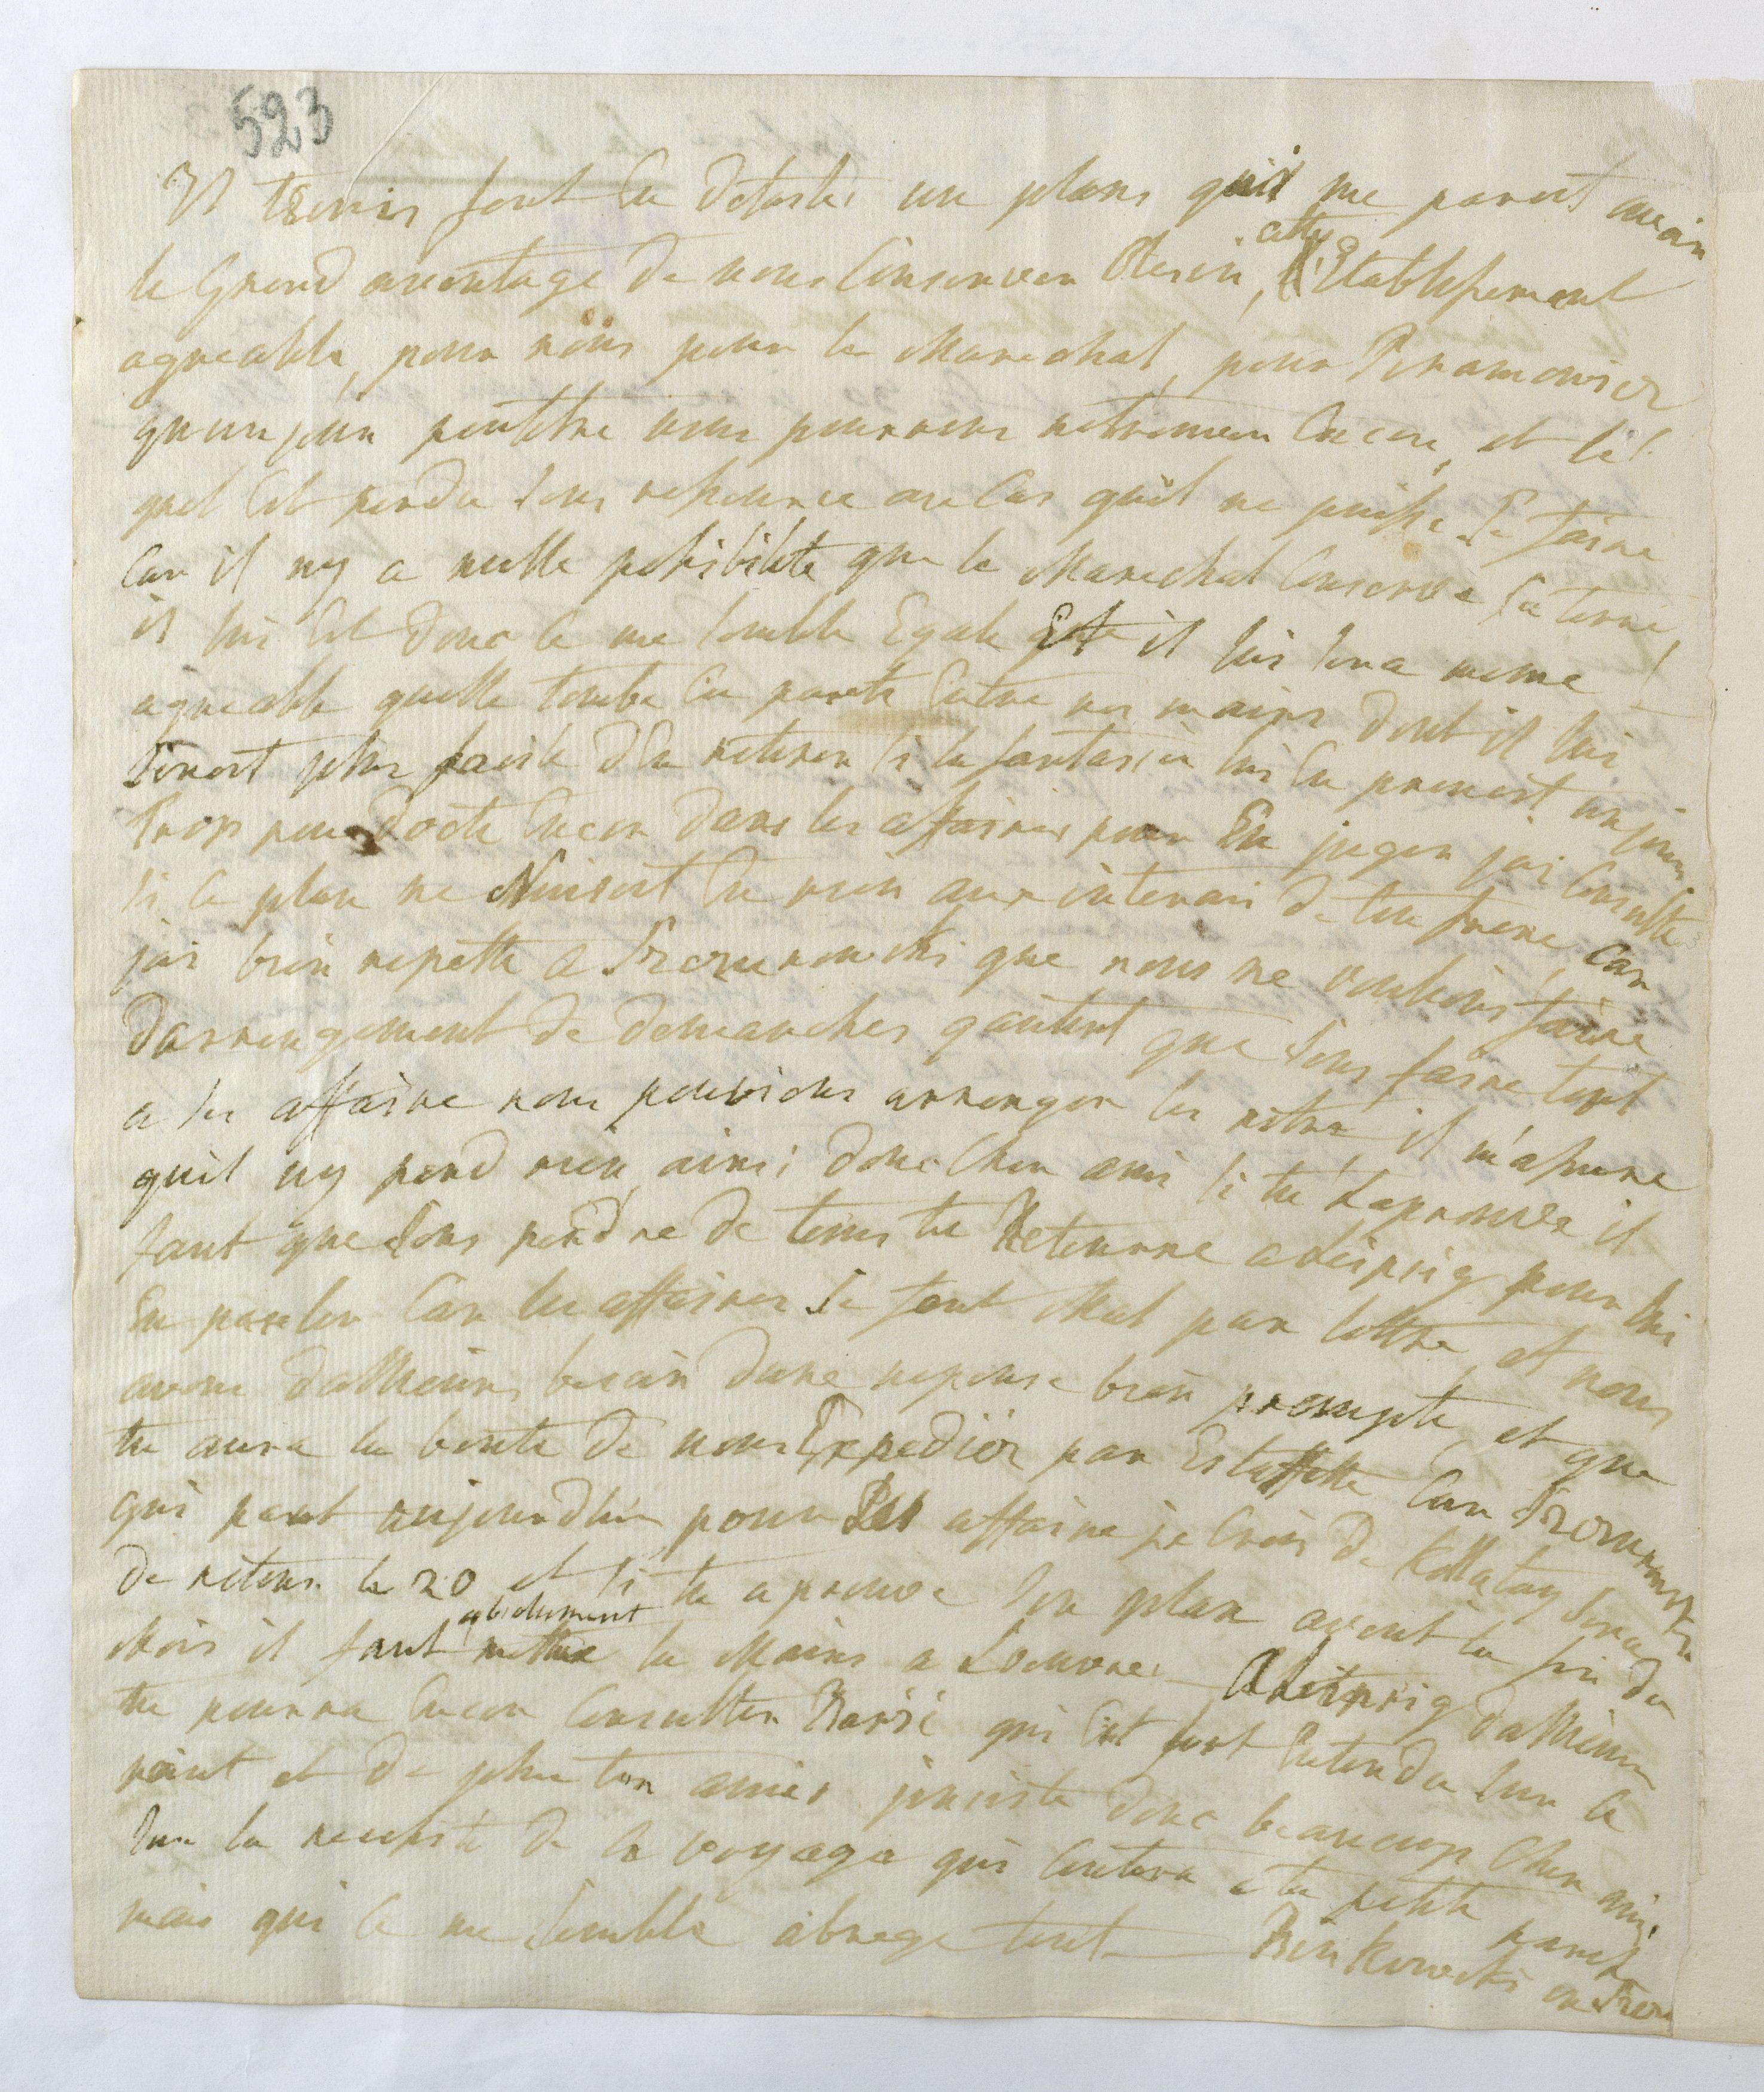 523
Il t'envis fort en detaile un plans qui me paroit avoir
le Grand avantage de nous Conserver Olesin, cette Etablissement
agreable, pour nous pour le Marechal, pour Piramowicz
qu'un jour peutetre nous pourrons retrouver encore, et lêt
quel est perdu sans resource au Cas quil ne puisse Se faire
Car il ny a nulle possibilite que le Marechal Conserve Sa terre,
il lui est donc ce me semble Egale Et il lui sera meme
agreable quelle tombe en partie entre nos mains dont il lui
Seroit plus facile d'la retirer si la fantasie lui en prenoit un jour
Trop peu docte encor dans les affaires pour En juger jai Consulte
si ce plan ne Nuisoit en rien aux interais de ton frere, Car
jai bien repette a que nous ne voulions faire
darrengement de demarches qautent que sans faire tort
a ses affaire nous pouvions arrenger les notre, il m'assure
quil ny perd rien, ainsi donc Cher ami si tu Laprouve il
faut que Sans perdre de tems tu Retourne a Leipsig pour lui
En parler Car les affaires Se font Mal par lettre, et nous
avons dallieurs besoin dune reponse bien prompte, et que
tu aura la bonte de nous Expedier par Estaffette Car
qui part aujourdhui pour Des affaire je Crois de Kollatay sera
de retour le 20 et si tu aprouve son plan avent la fin du
Mois il faut absolument mettre la Mains a Loeuvre. A Leipsig dallieur
tu pourra encor Consulter Barsé qui est fort Entendu sur ce
point et de plus ton amie, jinsiste donc beaucoup Cher ami.
sur la necessité de ce voyage qui Coutera a ta petite
mais qui ce me semble abrege tout — Binkowski ou